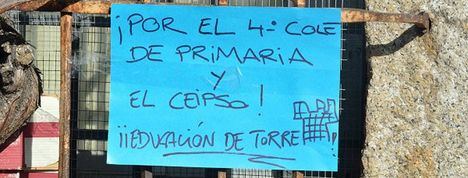 ¡POR EL 4.º COLE
DE PRIMARIA
Y
EL CEIPSO!
¡¡EDUCACIÓN DE TORRE!!